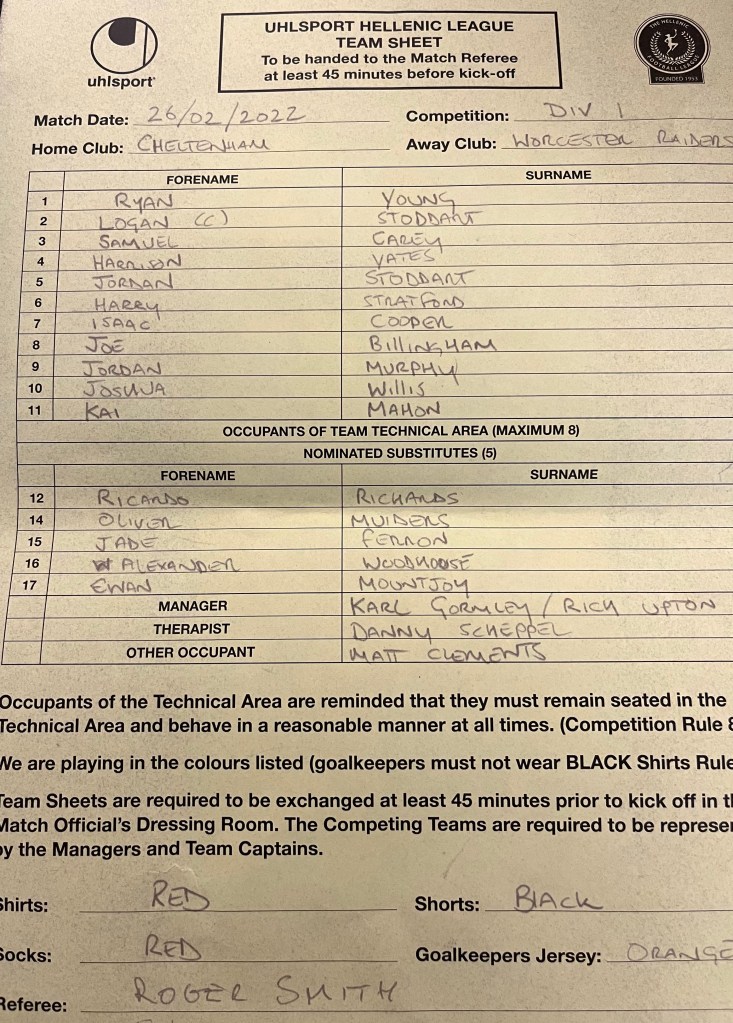 uhlsport
UHLSPORT HELLENIC LEAGUE
TEAM SHEET
To be handed to the Match Referee
at least 45 minutes before kick-off
THE HELLENIC
FOOTBALL LEAGUE
FOUNDED 1953
Match Date: 26/02/2022 Competition: DIV 1
Home Club: CHELTENHAM Away Club: WORCESTER RAIDERS
FORENAME SURNAME
1 RYAN YOUNG
2 LOGAN (C) STODDART
3 SAMUEL CAREY
4 HARRISON YATES
5 JORDAN STODDART
6 HARRY STRATFORD
7 ISAAC COOPER
8 JOE BILLINGHAM
9 JORDAN MURPHY
10 JOSHUA WILLIS
11 KAI MAHON
OCCUPANTS OF TEAM TECHNICAL AREA (MAXIMUM 8)
NOMINATED SUBSTITUTES (5)
FORENAME SURNAME
12 RICARDO RICHARDS
14 OLIVER MUIDERS
15 JADE FERRON
16 ALEXANDER WOODHOUSE
17 EWAN MOUNTJOY
MANAGER KARL GORMLEY / RICH UPTON
THERAPIST DANNY SCHEPPEL
OTHER OCCUPANT MATT CLEMENTS
Occupants of the Technical Area are reminded that they must remain seated in the
Technical Area and behave in a reasonable manner at all times. (Competition Rule 8
We are playing in the colours listed (goalkeepers must not wear BLACK Shirts Rule
Team Sheets are required to be exchanged at least 45 minutes prior to kick off in th
Match Official's Dressing Room. The Competing Teams are required to be represen
by the Managers and Team Captains.
Shirts: RED Shorts: BLACK
Socks: RED Goalkeepers Jersey: ORANGE
Referee: ROGER SMITH